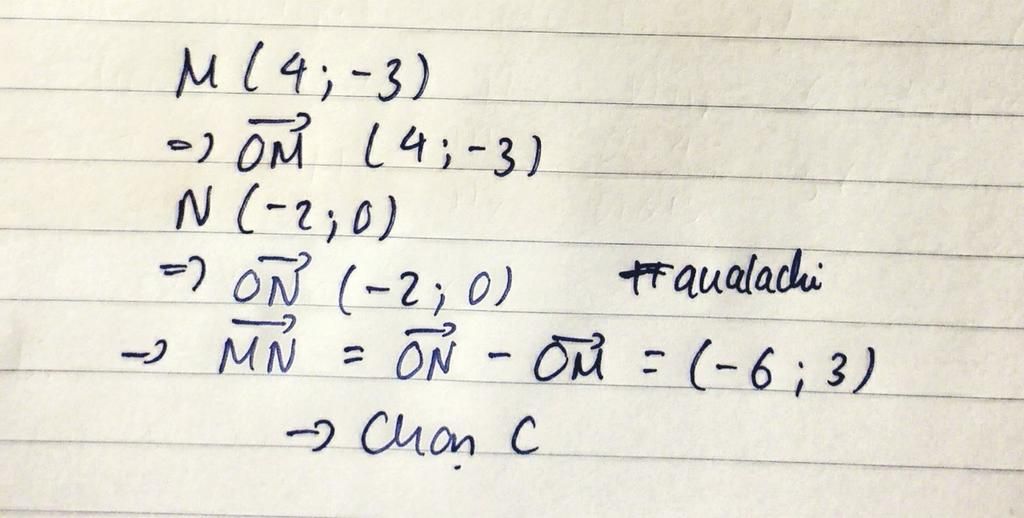 M (4; -3)
=> \overrightarrow{OM} (4; -3)
N (-2; 0)
=> \overrightarrow{ON} (-2; 0) #qualachi
→ \overrightarrow{MN} = \overrightarrow{ON} - \overrightarrow{OM} = (-6; 3)
→ Chọn C